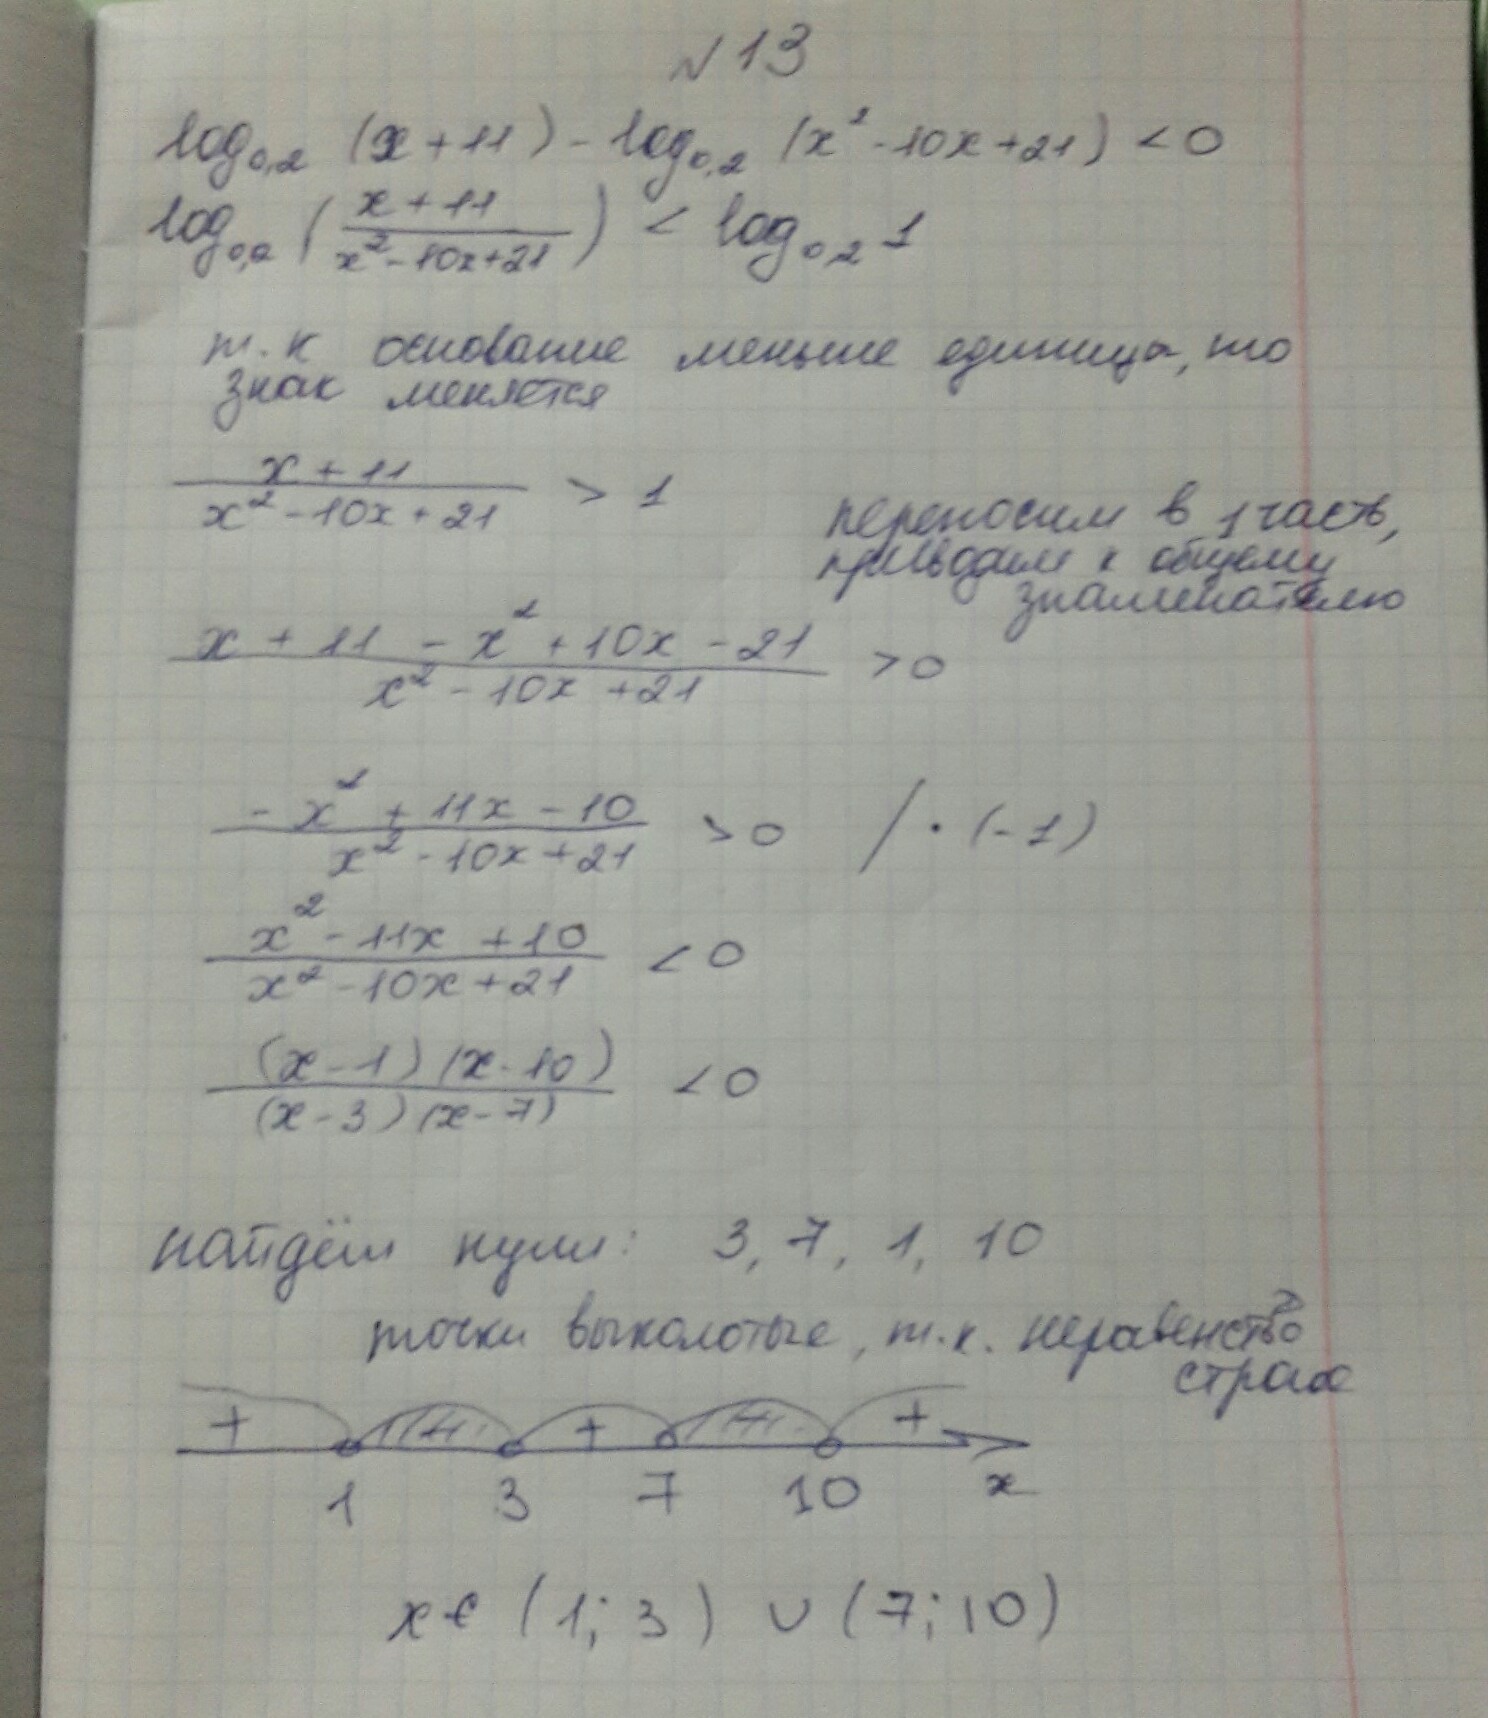 №13
log₀,₂ (x+11) - log₀,₂ (x² - 10x + 21) < 0
log₀,₂ ( (x+11)/(x² - 10x + 21) ) < log₀,₂ 1
т.к основание меньше единицы, то
знак меняется
(x + 11)/(x² - 10x + 21) > 1
переносим в 1 часть,
приводим к общему
знаменателю
(x + 11 - x² + 10x - 21)/(x² - 10x + 21) > 0
(- x² + 11x - 10)/(x² - 10x + 21) > 0 / · (-1)
(x² - 11x + 10)/(x² - 10x + 21) < 0
((x-1)(x-10))/((x-3)(x-7)) < 0
найдём нули: 3, 7, 1, 10
точки выколотые, т.к. неравенство
строгое
+ - + - +
1 3 7 10 x
x ∈ (1; 3) ∪ (7; 10)